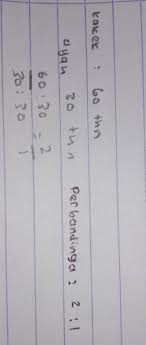 kakek : 60 thn
ayah 30 thn perbandinga : 2 : 1
60 : 30 = 2
30 : 30   1